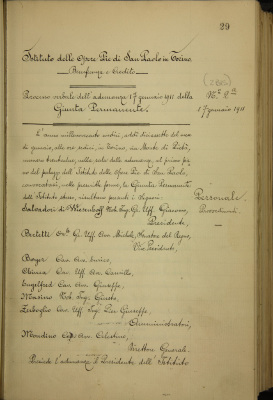 29
Istituto delle Opere Pie di San Paolo in Torino
(Beneficenza e Credito)
Processo verbale dell'adunanza 17 gennaio 1911 della
Giunta Permanente.
N.° 2°
17 gennaio 1911
L'anno millenovecento undici, addì diciassette del mese
di gennaio, alle ore sedici, in Torino, via Monte di Pietà,
numero trentadue, nella sala delle adunanze, al primo pia-
no del palazzo dell'Istituto delle Opere Pie di San Paolo,
convocatasi, nelle prescritte forme, la Giunta Permanente
dell'Istituto stesso, risultano presenti i Signori:
Personale
Presidente,
Badetti On. Gr. Uff. Avv. Michele, Senatore del Regno,
Vice Presidente,
Boyer Cav. Avv. Enrico,
Chiesa Cav. Uff. Avv. Camillo,
Engelfred Cav. Avv. Giuseppe,
Nob. Ing. Giusto,
Cav. Uff. Ing. Giuseppe,
Amministratori,
Mondino Avv. Celestino,
Direttore Generale.
Presiede l'adunanza il Presidente dell'Istituto